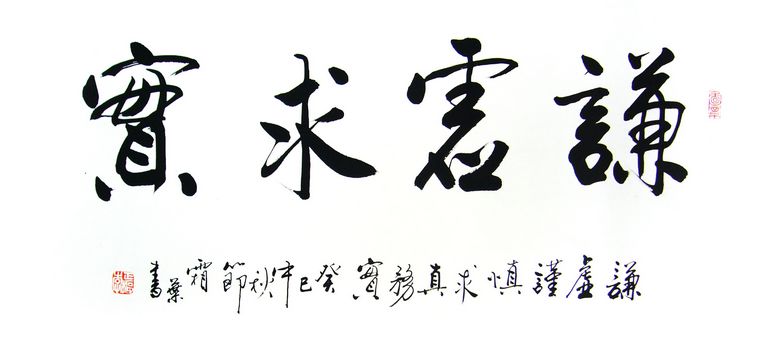 謙虛求實
謙虛謹慎求真務實癸巳仲秋節霜葉書